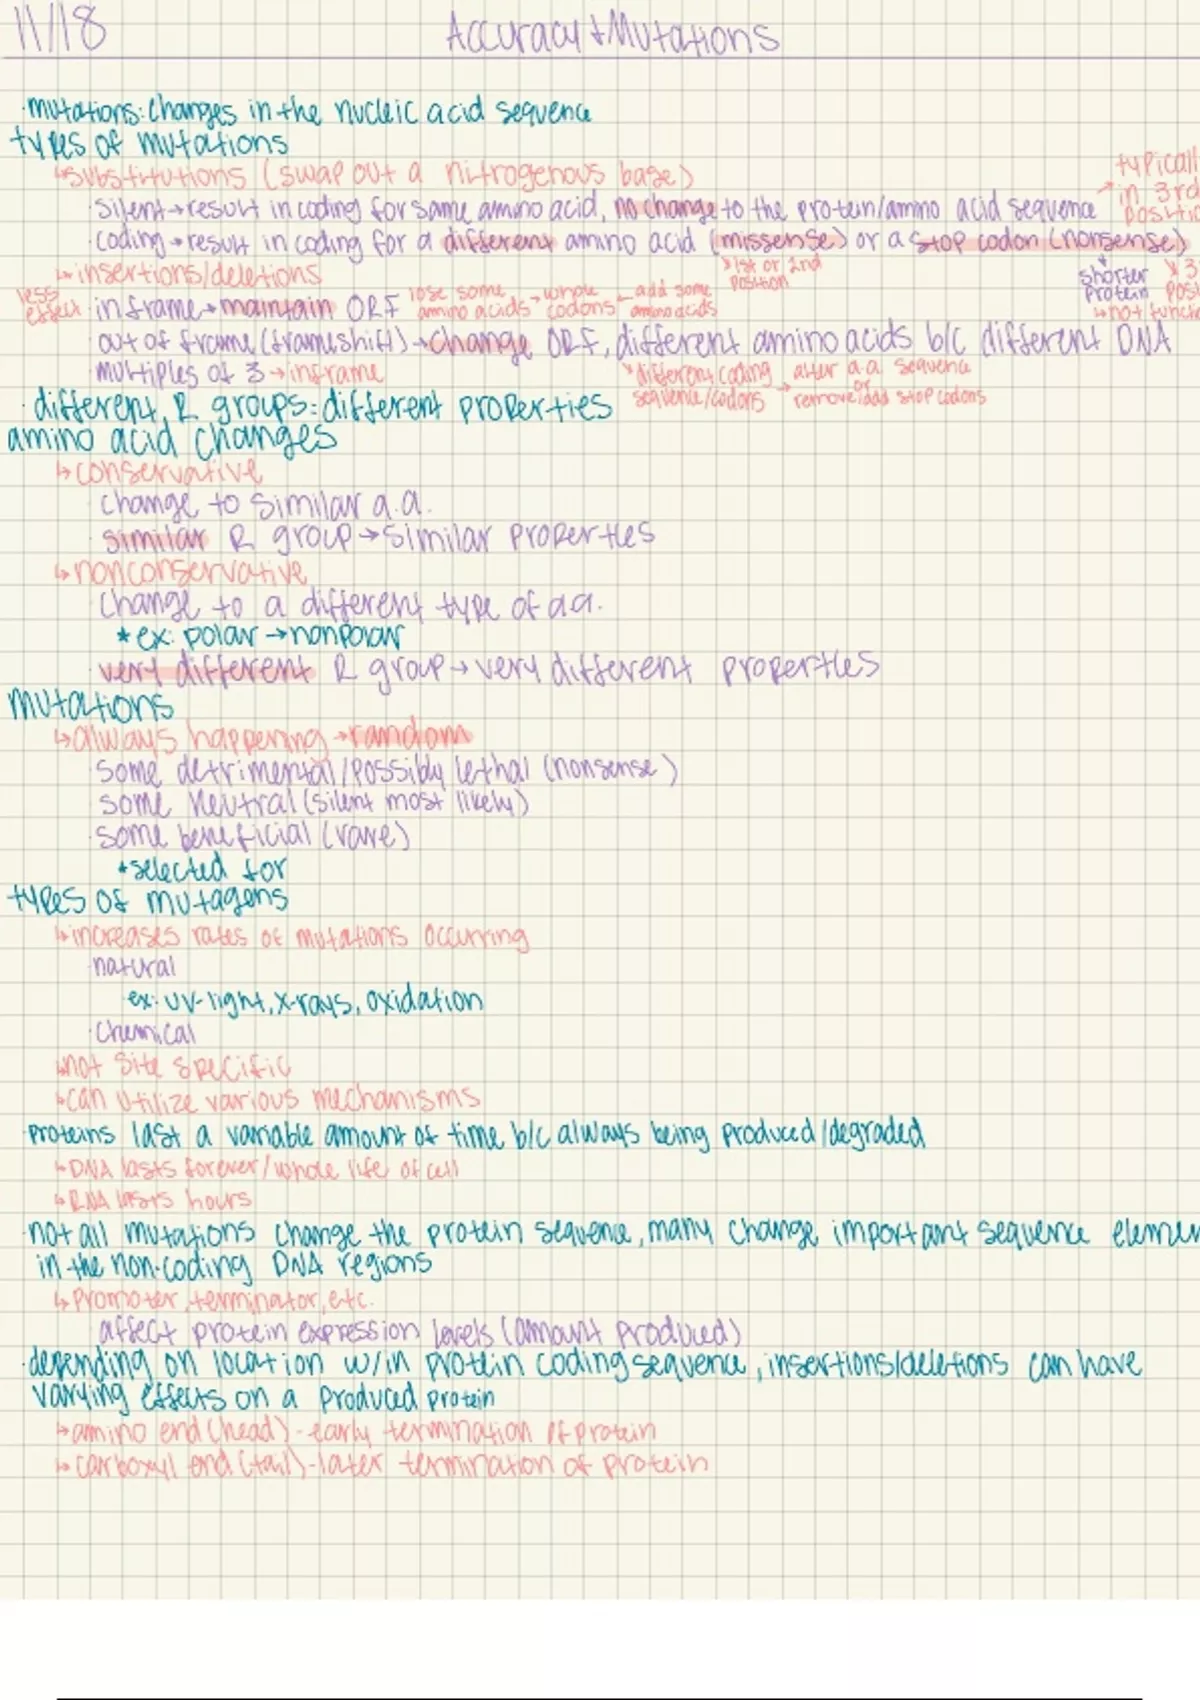 11/18
Accuracy + Mutations
·mutations: changes in the nucleic acid sequence
types of mutations
↳substitutions (swap out a nitrogenous base)
typicall
in 3rd
positio
·silent→result in coding for same amino acid, no change to the protein/amino acid sequence
·coding→result in coding for a different amino acid (missense) or a stop codon (nonsense)
↳1st or 2nd
position
shorter
protein
↳not functi
↳insertions/deletions
less
effect
·inframe→maintain ORF
lose some
amino acids
whole
codons
add some
amino acids
·out of frame (frameshift)→change ORF, different amino acids b/c different DNA
↳different coding
sequence/codons
→
alter a.a. sequence
or
remove/add stop codons
·multiples of 3→inframe
·different R groups: different properties
amino acid changes
↳conservative
·change to similar a.a.
·similar R group→similar properties
↳nonconservative
·change to a different type of aa.
*ex: polar→nonpolar
·very different R group→very different properties
mutations
↳always happening→random
·some detrimental/possibly lethal (nonsense)
·some neutral (silent most likely)
·some beneficial (rare)
*selected for
types of mutagens
↳increases rates of mutations occurring
·natural
·ex: UV-light, x-rays, oxidation
·chemical
↳not site specific
↳can utilize various mechanisms
·proteins last a variable amount of time b/c always being produced/degraded
↳DNA lasts forever/whole life of cell
↳RNA lasts hours
·not all mutations change the protein sequence, many change important sequence elemen
in the non-coding DNA regions
↳promoter, terminator, etc.
·affect protein expression levels (amount produced)
·depending on location w/in protein coding sequence, insertions/deletions can have
varying effects on a produced protein
↳amino end (head)-early termination of protein
↳carboxyl end (tail)-later termination of protein